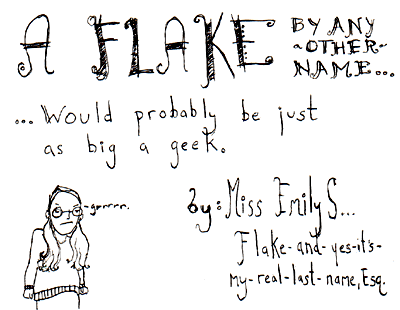 A FLAKE BY ANY
-OTHER-
NAME...
...Would probably be just
as big a geek.
-grrrrr.
by: Miss Emily S...
Flake-and-yes-it's-
my-real-last-name, Esq.